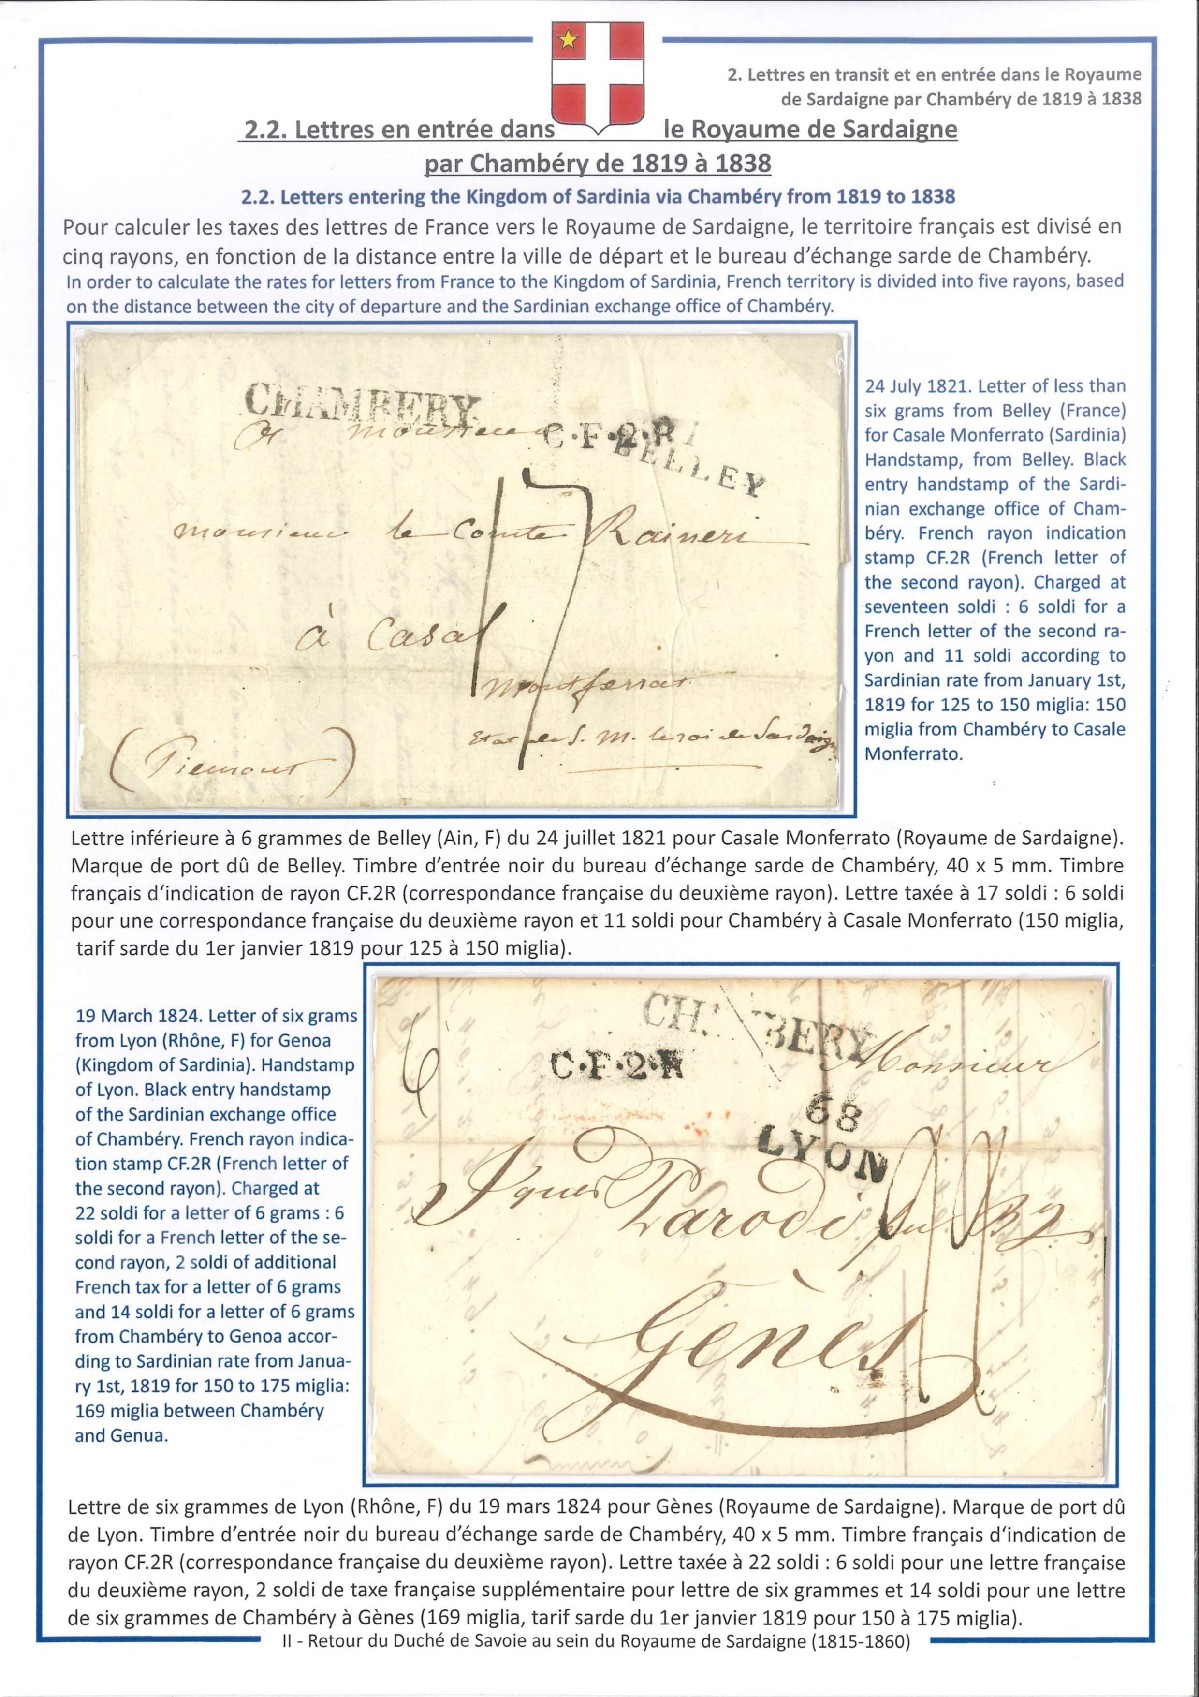 2. Lettres en transit et en entrée dans le Royaume
de Sardaigne par Chambéry de 1819 à 1838
2.2. Lettres en entrée dans le Royaume de Sardaigne
par Chambéry de 1819 à 1838
2.2. Letters entering the Kingdom of Sardinia via Chambéry from 1819 to 1838
Pour calculer les taxes des lettres de France vers le Royaume de Sardaigne, le territoire français est divisé en
cinq rayons, en fonction de la distance entre la ville de départ et le bureau d'échange sarde de Chambéry.
In order to calculate the rates for letters from France to the Kingdom of Sardinia, French territory is divided into five rayons, based
on the distance between the city of departure and the Sardinian exchange office of Chambéry.
CHAMBERY
C.F.2.R
BELLEY
A monsieur
17
monsieur le Comte Raineri
à Casal
Montferrat
Etat de S. M. le roi de Sardaigne
(Piemont)
24 July 1821. Letter of less than
six grams from Belley (France)
for Casale Monferrato (Sardinia)
Handstamp, from Belley. Black
entry handstamp of the Sardi-
nian exchange office of Cham-
béry. French rayon indication
stamp CF.2R (French letter of
the second rayon). Charged at
seventeen soldi : 6 soldi for a
French letter of the second ra-
yon and 11 soldi according to
Sardinian rate from January 1st,
1819 for 125 to 150 miglia: 150
miglia from Chambéry to Casale
Monferrato.
Lettre inférieure à 6 grammes de Belley (Ain, F) du 24 juillet 1821 pour Casale Monferrato (Royaume de Sardaigne).
Marque de port dû de Belley. Timbre d'entrée noir du bureau d'échange sarde de Chambéry, 40 x 5 mm. Timbre
français d'indication de rayon CF.2R (correspondance française du deuxième rayon). Lettre taxée à 17 soldi : 6 soldi
pour une correspondance française du deuxième rayon et 11 soldi pour Chambéry à Casale Monferrato (150 miglia,
tarif sarde du 1er janvier 1819 pour 125 à 150 miglia).
19 March 1824. Letter of six grams
from Lyon (Rhône, F) for Genoa
(Kingdom of Sardinia). Handstamp
of Lyon. Black entry handstamp
of the Sardinian exchange office
of Chambéry. French rayon indica-
tion stamp CF.2R (French letter of
the second rayon). Charged at
22 soldi for a letter of 6 grams : 6
soldi for a French letter of the se-
cond rayon, 2 soldi of additional
French tax for a letter of 6 grams
and 14 soldi for a letter of 6 grams
from Chambéry to Genoa accor-
ding to Sardinian rate from Janua-
ry 1st, 1819 for 150 to 175 miglia:
169 miglia between Chambéry
and Genua.
CHAMBERY
6
C.F.2.R
Monsieur
68
LYON
Parodi
Gènes
Lettre de six grammes de Lyon (Rhône, F) du 19 mars 1824 pour Gènes (Royaume de Sardaigne). Marque de port dû
de Lyon. Timbre d'entrée noir du bureau d'échange sarde de Chambéry, 40 x 5 mm. Timbre français d'indication de
rayon CF.2R (correspondance française du deuxième rayon). Lettre taxée à 22 soldi : 6 soldi pour une lettre française
du deuxième rayon, 2 soldi de taxe française supplémentaire pour lettre de six grammes et 14 soldi pour une lettre
de six grammes de Chambéry à Gènes (169 miglia, tarif sarde du 1er janvier 1819 pour 150 à 175 miglia).
II - Retour du Duché de Savoie au sein du Royaume de Sardaigne (1815-1860)